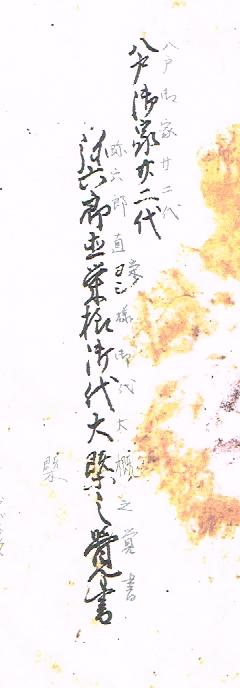 八戸御家廿二代
八戸御家廿二代
弥六郎直栄様御代大概之覚書
弥六郎直栄様御代大概之覚書
ヨシ
槩